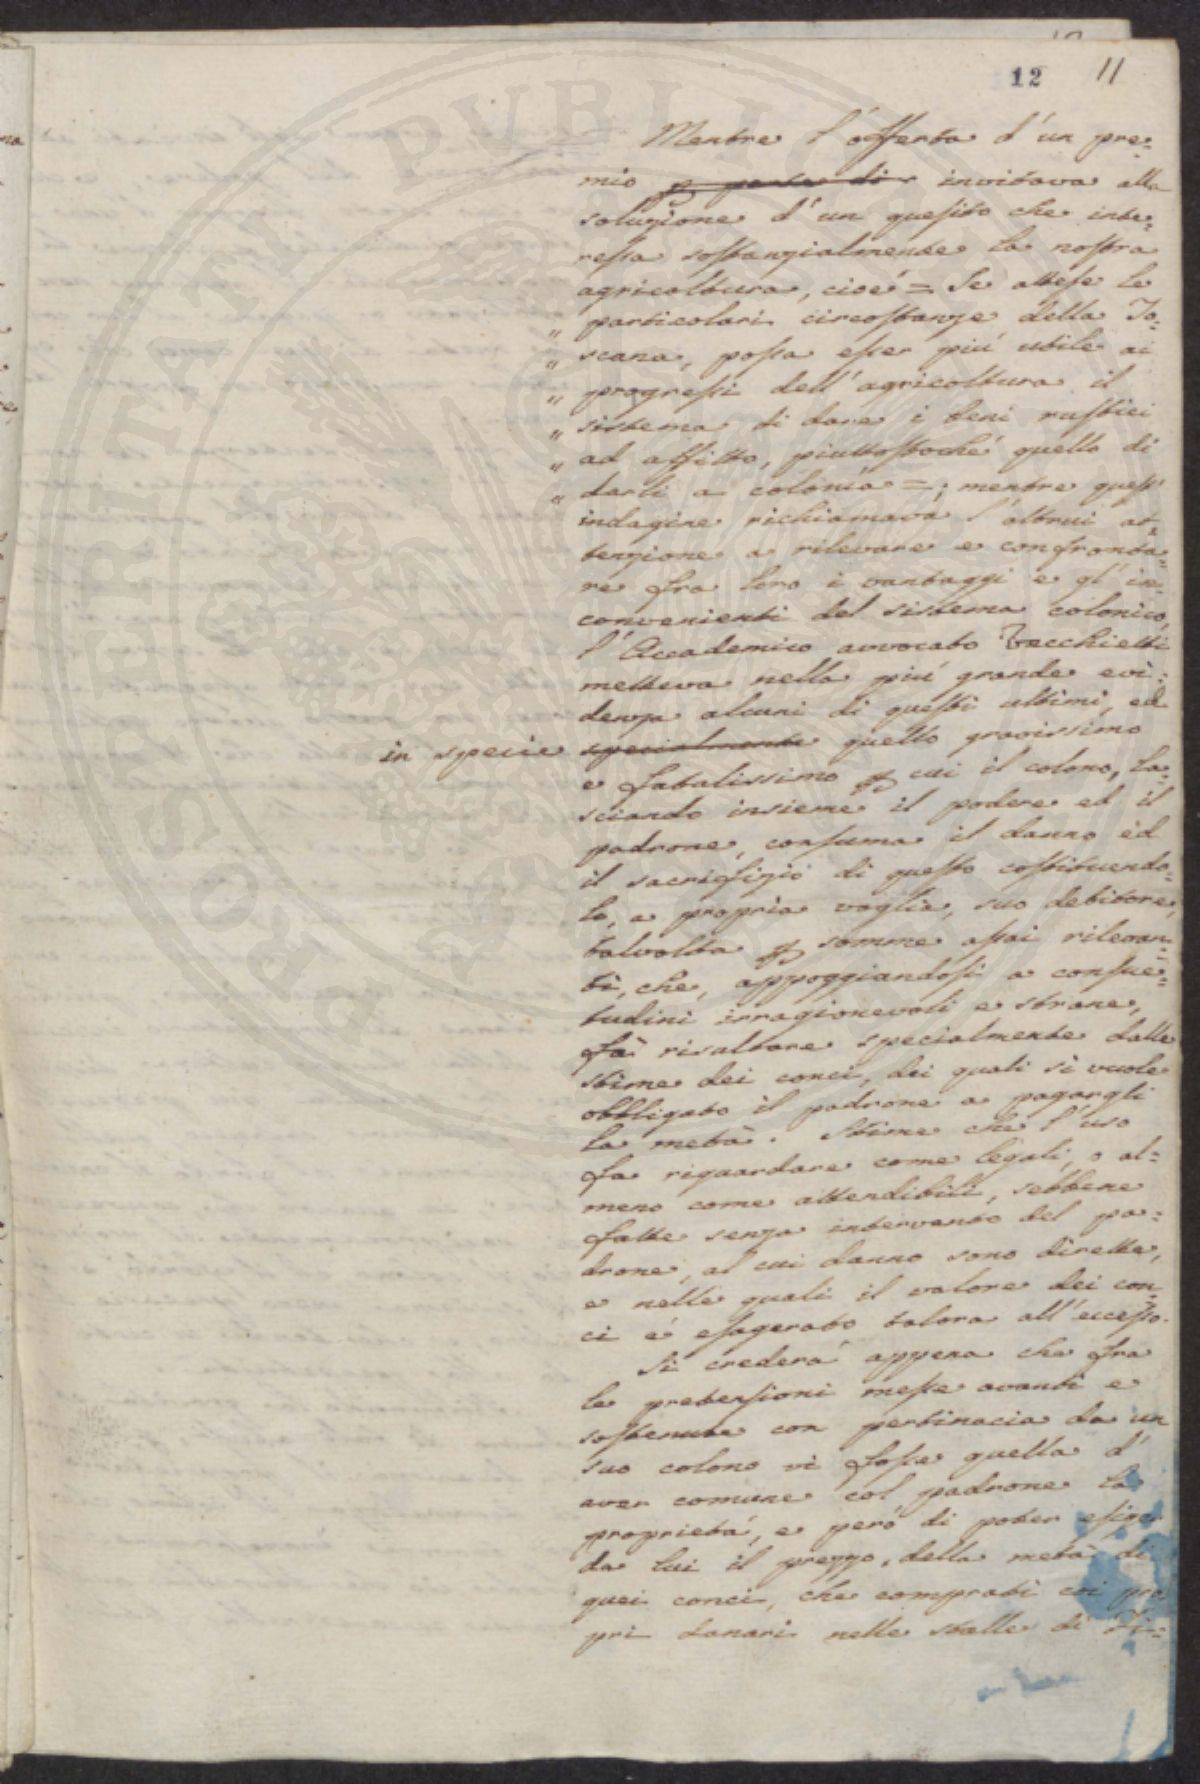 12 11
Mentre l'offerta d'un pre=
mio p parte di invitava alla
soluzione d'un quesito che inte=
ressa sostanzialmente la nostra
agricoltura, cioè = Se attese le
" particolari circostanze della To=
" scana, possa esser più utile ai
" progressi dell'agricoltura il
" sistema di dare i beni rustici
" ad affitto, piuttostoché quello di
" darli a colonìa =; mentre quest'
indagine richiamava l'altrui at=
tenzione a rilevare e confronta=
re fra loro i vantaggi e gl'in=
convenienti del sistema colonico,
l'Accademico avvocato Vecchietti
metteva nella più grande evi=
denza alcuni di questi ultimi, ed
in specie specialmente quello gravissimo
e fatalissimo p cui il colono, la=
sciando insieme il podere ed il
padrone, consuma il danno ed
il sacrifizio di questo costituendo=
lo, a propria voglia, suo debitore,
talvolta p somme assai rilevan=
ti, che, appoggiandosi a consue=
tudini irragionevoli e strane,
fà risultare specialmente dalle
stime dei conci, dei quali si vuole
obbligato il padrone a pagargli
la metà. Stime che l'uso
fa riguardare come legali, o al=
meno come attendibili, sebbene
fatte senza intervento del pa=
drone, al cui danno sono dirette,
e nelle quali il valore dei con=
ci é esagerato talora all'eccesso.
Si crederà appena che fra
le pretensioni messe avanti e
sostenute con pertinacia da un
suo colono vi fosse quella d'
aver comune col padrone la
proprietà, e però di poter esiger
da lui il prezzo, della metà di
quei conci, che comprati coi pro
pri danari nelle stalle di Fi=